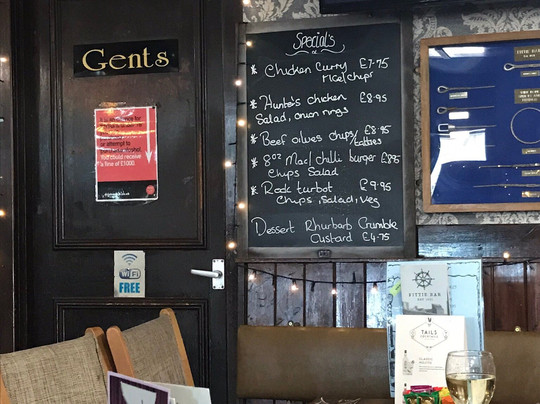 Gents
It is an offence for
or attempt to
purchase alcohol.
You could receive
a fine of £1000.
WiFi
FREE
Special's
Chicken Curry £7.75
Rice/chips
Hunters chicken £8.95
Salad, onion rings
Beef olives chips/ £8.95
tatties
8oz Mac/Chilli burger £8.95
Chips Salad
Rock turbot £9.95
Chips, salad, veg
Dessert Rhurbarb Crumble
Custard £4.75
FITTIE BAR
FITTIE BAR
TAILS